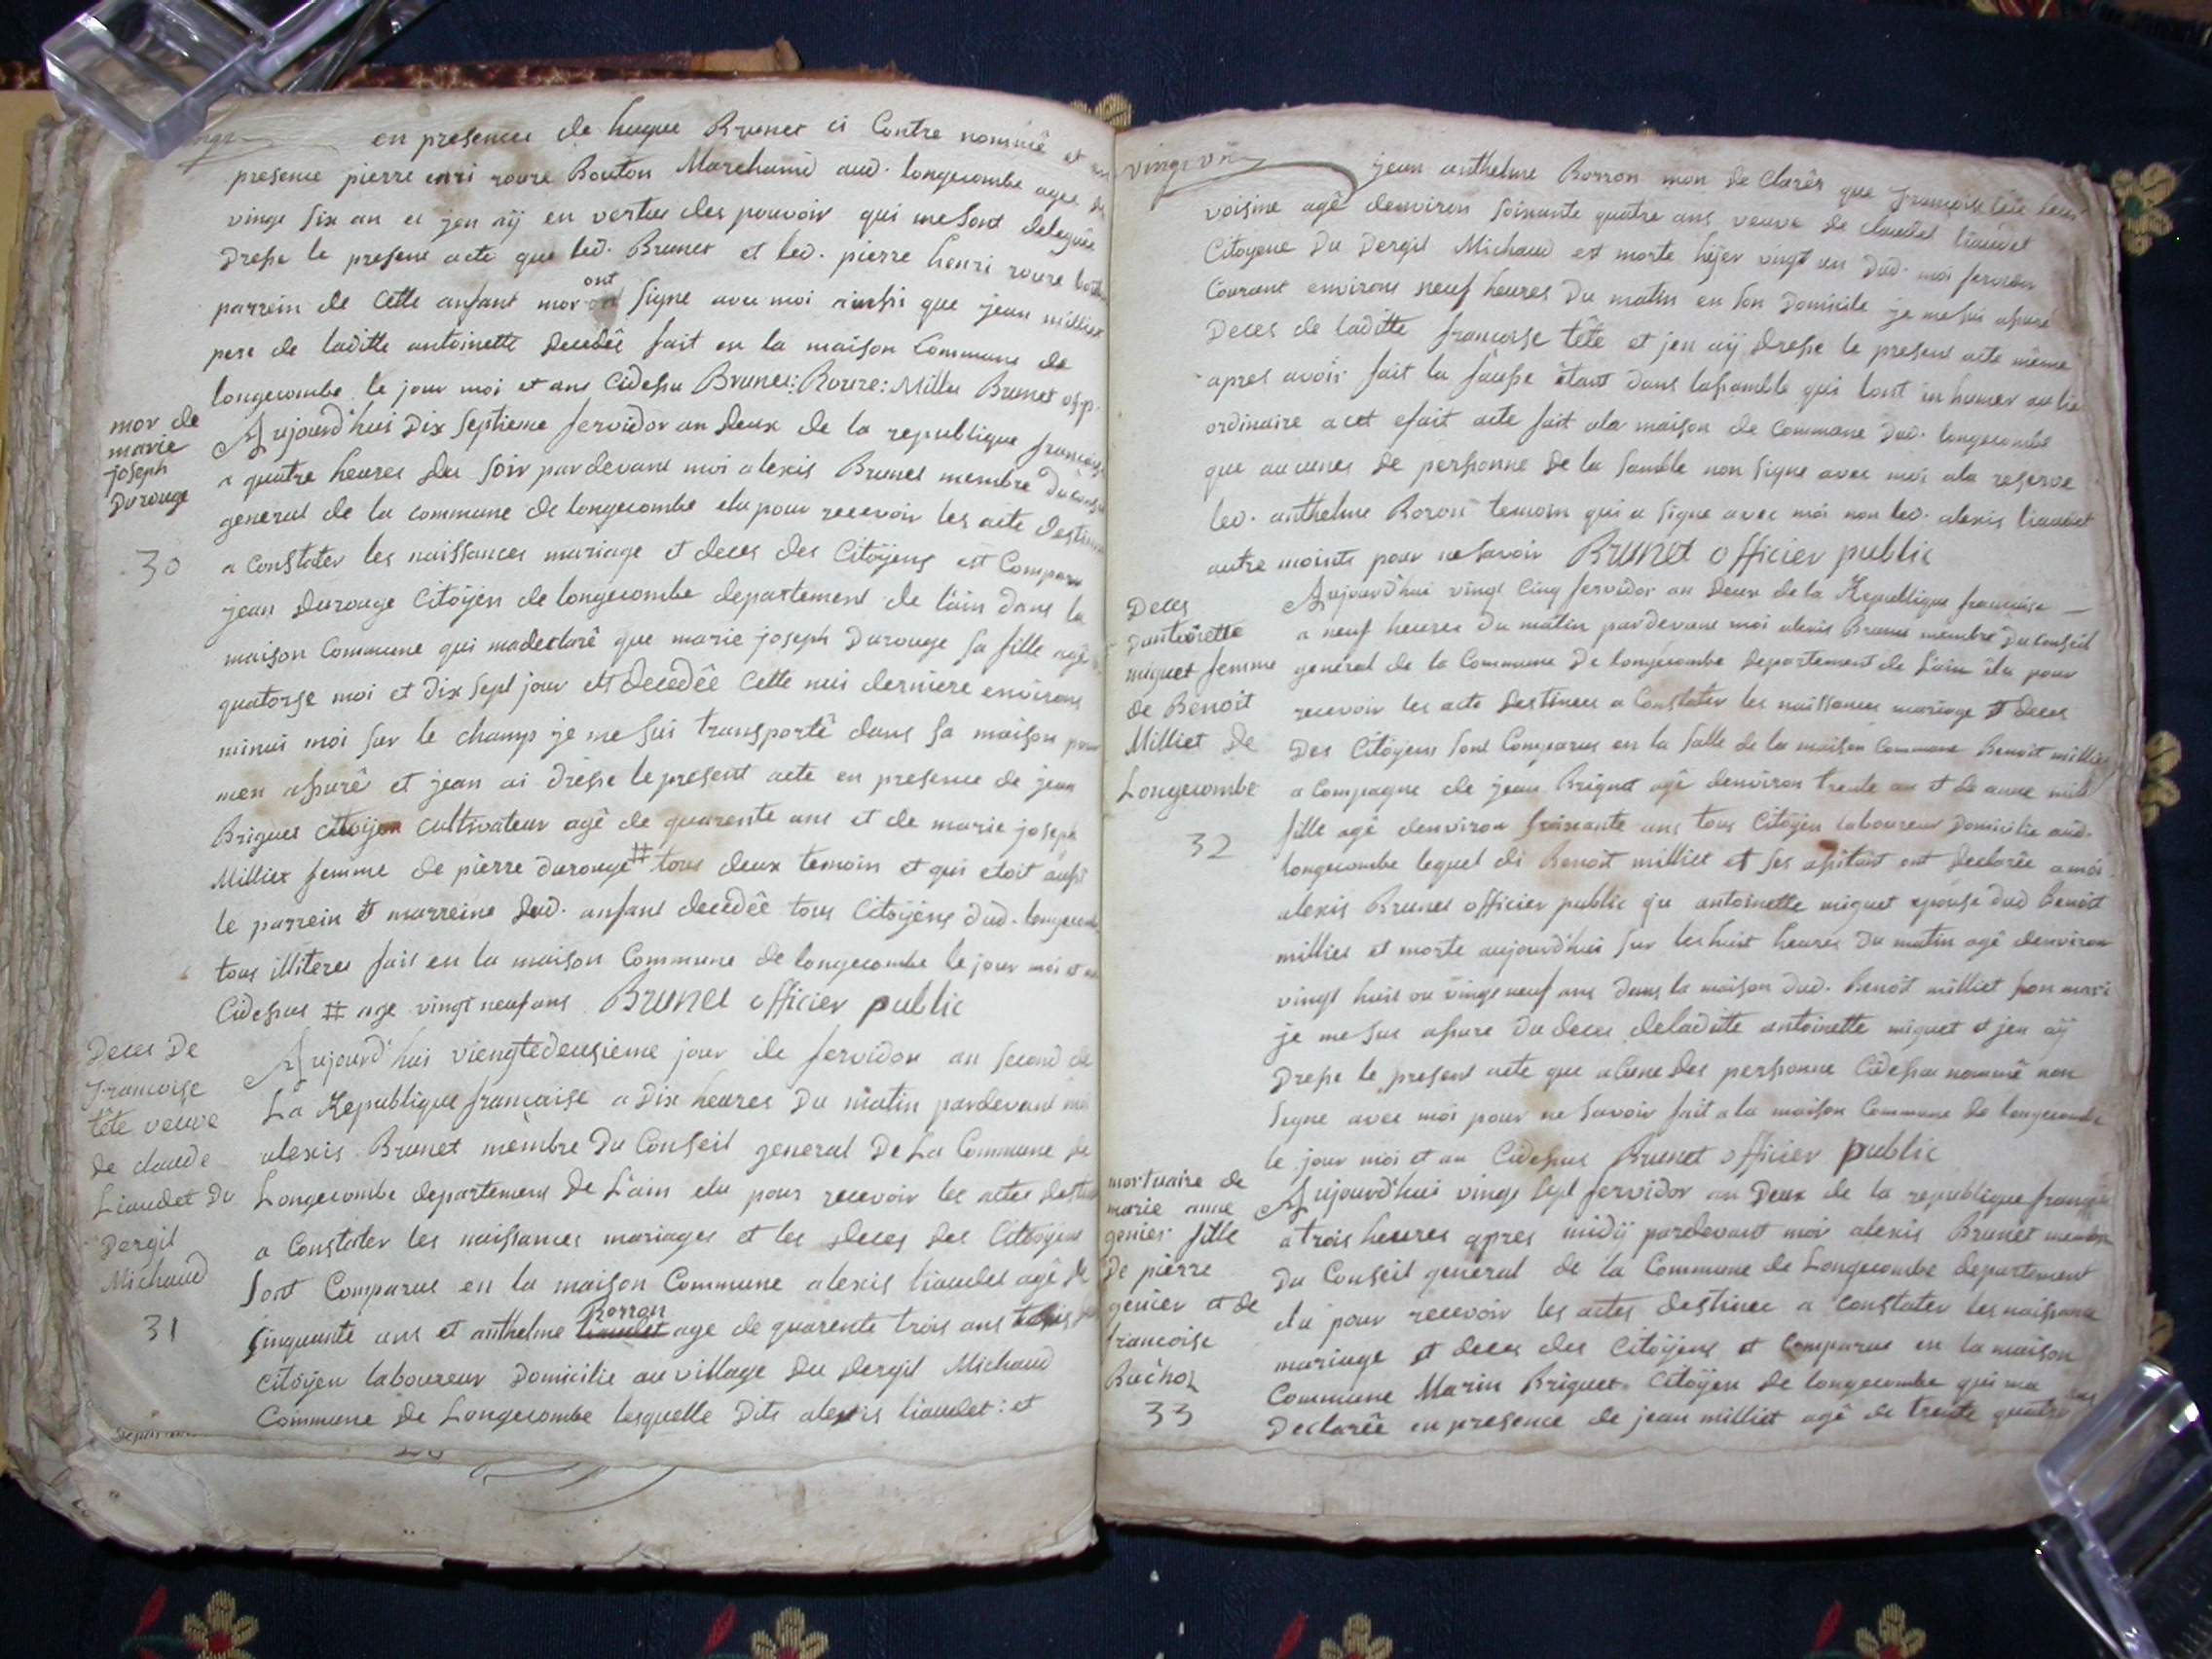 en presence de hugue Brunet ci Contre nommé et
presence pierre enri rovre Bouton Marchand aud. longecombe agee de
vingt six an et jen aÿ en vertue des pouvoir qui me sont deleguée
Dresse le present acte que led. Brunet et led. pierre henri rovre
parrein de cette anfant mor ont signe avec moi ainssi que jean milliex
pere de laditte antoinette decedêe fait en la maison Commune de
longecombe le jour moi et ans Cidessu Brunet: Rovre: Millie Brunet of.p.
mor de
marie
joseph
Durouge
30
Aujourd'hui Dix septieme fervidor an deux de la republique francaise
a quatre heures du soir pardevant moi alexis Brunet membre du
general de la commune de longecombe elu pour recevoir les acte destinee
a Constater les naissances mariage et deces des Citöyens est Comparu
jean durouge Citöyen de longecombe departement de lain dans la
maison Commune qui madeclarê que marie joseph Durouge sa fille agê
quatorse moi et Dix sept jour est decedêe cette nui derniere environs
minui moi sur le champ je me suis transportê dans sa maison pour
men assurê et jean ai dresse le present acte en presence de jean
Briguet citoÿen cultivateur agê de quarente ans et de marie joseph
Milliex femme de pierre durouge # tous deux temoin et qui etoit aussi
le parrein et marreine dud. anfant decedêe tous Citöyens dud. longecombe
tous illiteres fait en la maison Commune de longecombe le jour moi et an
Cidessus # age vingt neuf ans Brunet officier public
Deces De
francoise
tête veuve
de claude
Liaudet du
Dergil
Michaud
31
Aujourd'hui viengtedeusieme jour de fervidor an second de
La Republique francaise a Dix heures Du matin pardevant moi
alexis Brunet membre Du Conseil general De La Commune de
Longecombe departement De L'ain elu pour recevoir les actes destinee
a Constater les naissances mariages et les deces des Citöyens
Sont Comparus en la maison Commune alexis liaudet agê de
Cinquante ans et anthelme liaudet Borron age de quarente trois ans tous
citöyen laboureur Domicilie au village du dergil Michaud
Commune de Longecombe lesquelle Dits alexis liaudet: et
vingt un
jean anthelme Borron mon declarês que francoise tête leur
voisine agê denviron soixante quatre ans veuve de claudet liaudet
Citoyene Du Dergil Michaud est morte hÿer vingt un dud. moi fervidor
Courant environs neuf heures Du matin en son Domicile je me sui assurê
Deces de laditte francoise tête et jen aÿ Dresse le present acte même
apres avoir fait la
ordinaire a cet efait acte fait ala maison de Commune dud. longecombe
que aucunes de perssonne de la samble non signe avec moi ala reserve
led. anthelme Boron temoin qui a signe avec moi non led. alexis liaudet
autre moints pour ne savoir Brunet officier public
Deces
Dantoinette
miguet femme
de Benoit
Milliet de
Longecombe
32
Aujourd'hui vingt cinq fervidor an deux de la Republique francaise
a neuf heures du matin pardevant moi alexis Brunet membre Du Conseil
general de la Commune De longecombe departement de Lain êlu pour
recevoir les acte destinees a Constater les naissances mariage et deces
Des Citöyens sont Comparus en la salle de la maison Commune Benoit milliet
a Compagne de jean Briguet agê denviron trente an et de anne
fille agê denviron soixante ans tous Citöyen laboureur Domicilie aud.
longecombe lequel di Benoit milliet et ses asistant ont declarêe a moi
alexis Brunet officier public que antoinette miguet epouse dud Benoit
milliet et morte aujourd'hui sur les huit heures Du matin agê denviron
vingt huit ou vingt neuf ans dans la maison dud. Benoit milliet son mari
je me sus assure Du deces deladitte antoinette miguet et jen aÿ
Dresse le present acte que alune des perssonne Cidessu nommê non
signe avec moi pour ne savoir fait a la maison Commune de longecombe
le jour moi et an Cidessus Brunet officier public
mortuaire de
marie anne
genier fille
De pierre
genier et de
francoise
Buchoz
33
Aujourd'hui vingt sept fervidor an Deux de la republique francaise
a trois heures apres midÿ pardevant moi alexis Brunet membre
Du Conseil general de la Commune de Longecombe departement
elu pour recevoir les actes destinee a constater les naissance
mariage et deces des Citöyens et Comparus en la maison
Commune Marin Briguet Citöyen de longecombe qui ma
Declarêe en presence de jean milliet agê de trente quatre ans